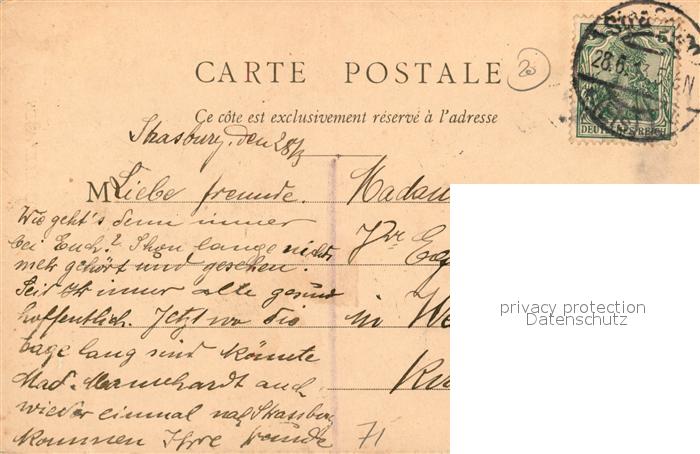 CARTE POSTALE
20
Ce côte est exclusivement réservé à l'adresse
5
28.6.13.
DEUTSCHES REICH
Strasburg, den 28/
M
Liebe freunde.
Wie geht's denn immer
bei Euch? Schon lange nichts
mehr gehört und gesehen.
Seit Ihr immer alle gesund
hoffentlich. Jetzt wo die
tage lang sind könnte
Mad. auch
wieder einmal nach Strassburg
kommen Ihre freunde
Madam
in We
71
privacy protection
Datenschutz